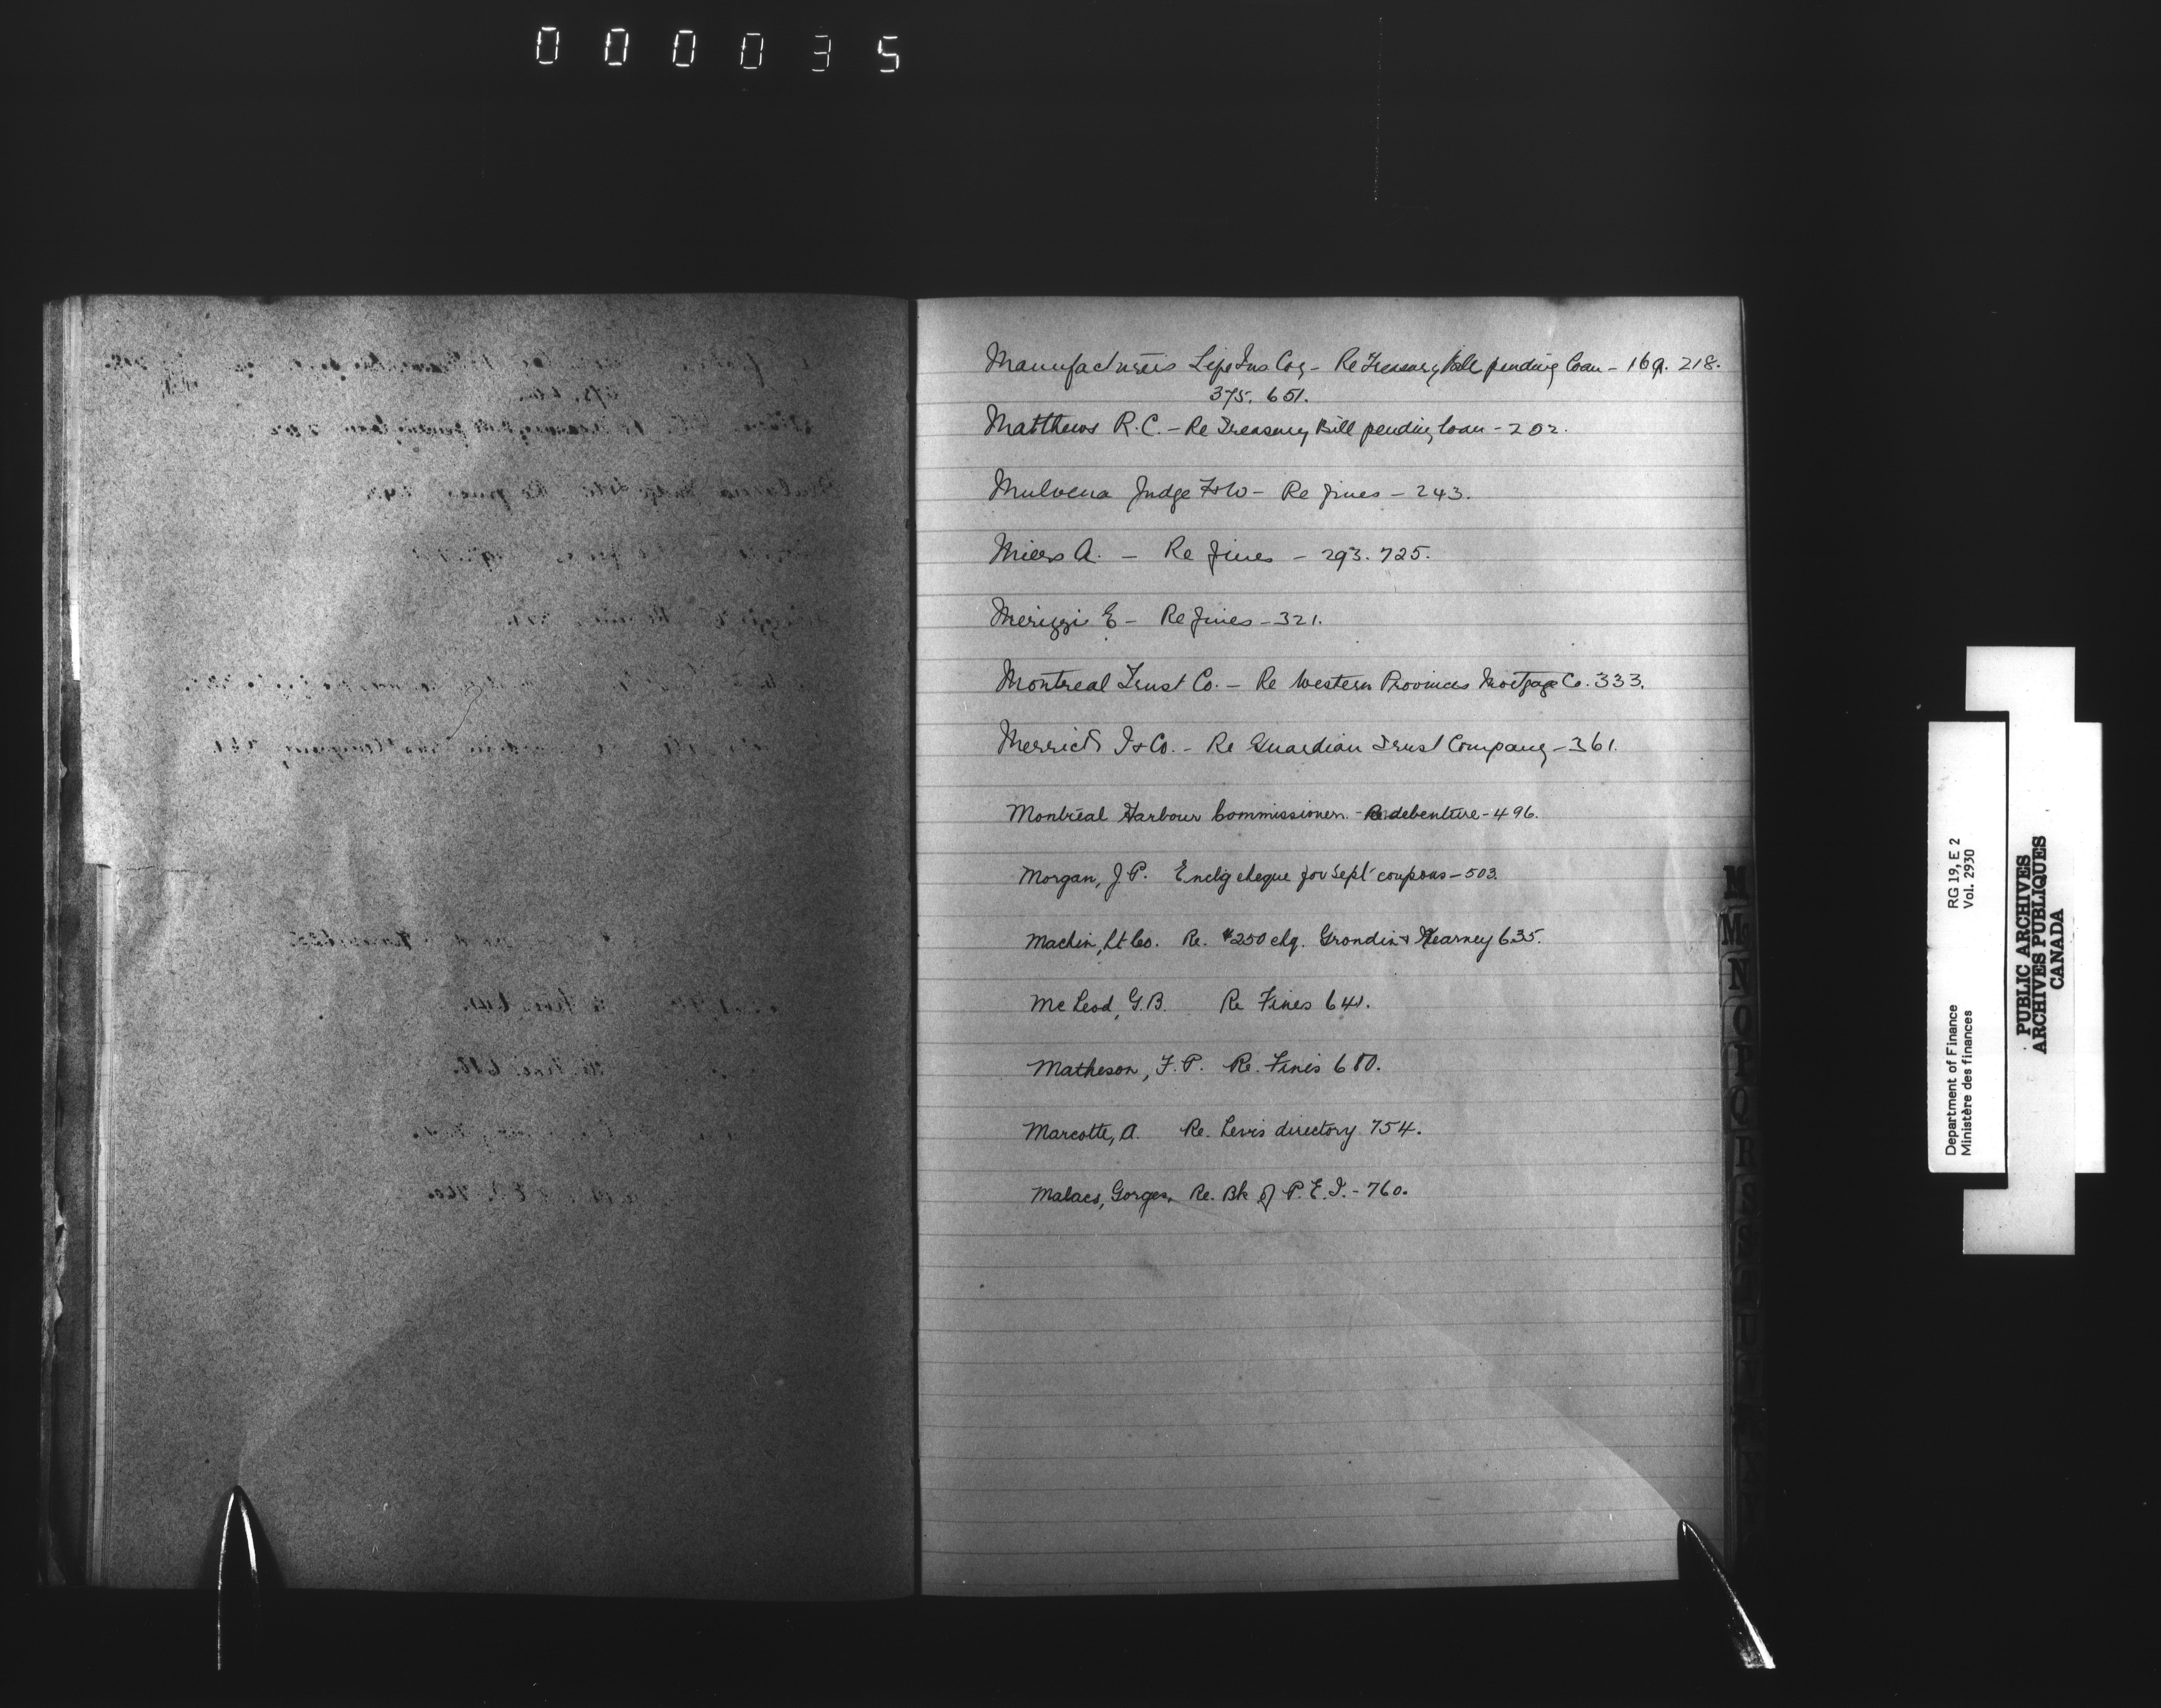 000035
Manufacturers Life Ins Coy - Re Treasury Bill pending loan - 169. 218.
375. 651.
Matthews R.C. - Re Treasury Bill pending loan - 202.
Mulvena Judge F+W - Re fines - 243.
Miers A. - Re fines - 293. 725.
Merizzi E - Re fines - 321.
Montreal Trust Co. - Re Western Provinces Mortgage Co. 333.
Merrick I & Co. - Re Guardian Trust Company - 361.
Montreal Harbour Commissioners - Re debenture - 496.
Morgan, J P. Enclg cheque for Sept coupons - 503.
Machin, Lt Co. Re. $250 chq. Grondin & Kearney 635.
McLeod, G.B. Re Fines 641.
Matheson, F. P. Re. Fines 680.
Marcotte, A. Re. Levis directory 754.
Malaes, Gorges, Re. Bk of P. E. I. - 760.
M
Mc
N
O
P
Q
R
S
T
U
Department of Finance
Ministère des finances
RG 19, E 2
Vol. 2930
PUBLIC ARCHIVES
ARCHIVES PUBLIQUES
CANADA